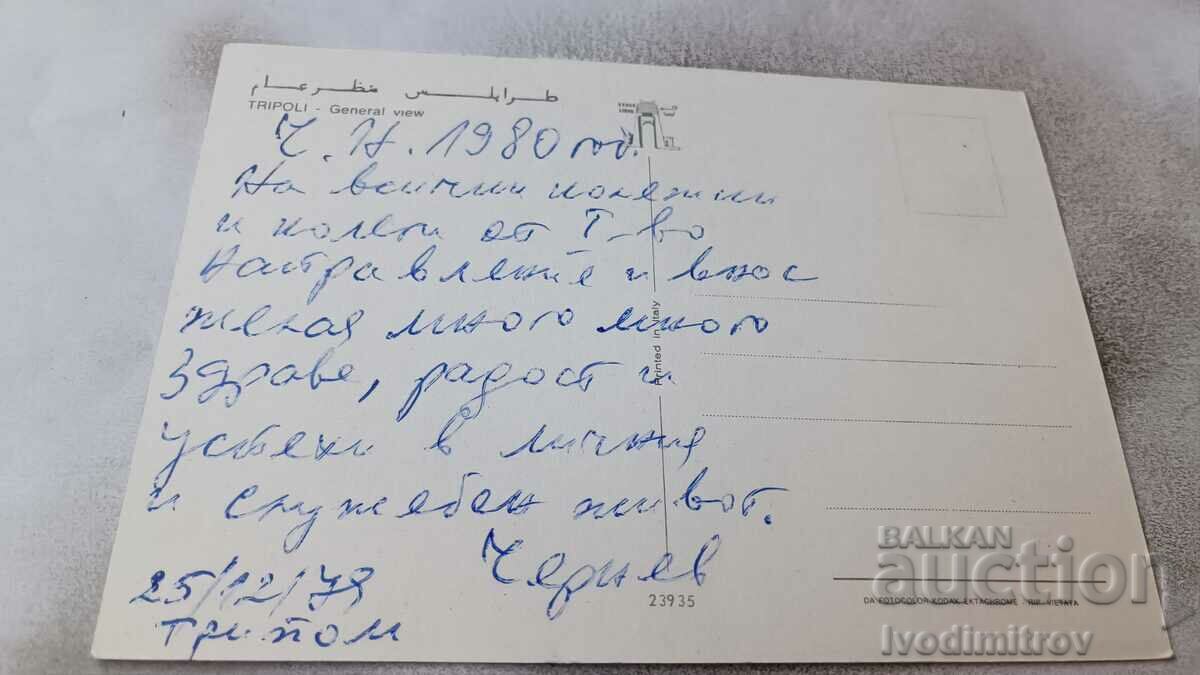 طرابلس منظر عام
TRIPOLI - General view
Ч.Н. 1980 год.
На всички колежки
и колеги от Г-во
Направление и внос
желая много много
здраве, радост и
успехи в личния
и служебен живот.
Чернев
25/12/79
Триполи
Printed in Italy
23935
DA FOTOCOLOR KODAK EKTACHROME - RIP. VIETATA
BALKAN
auction
Ivodimitrov